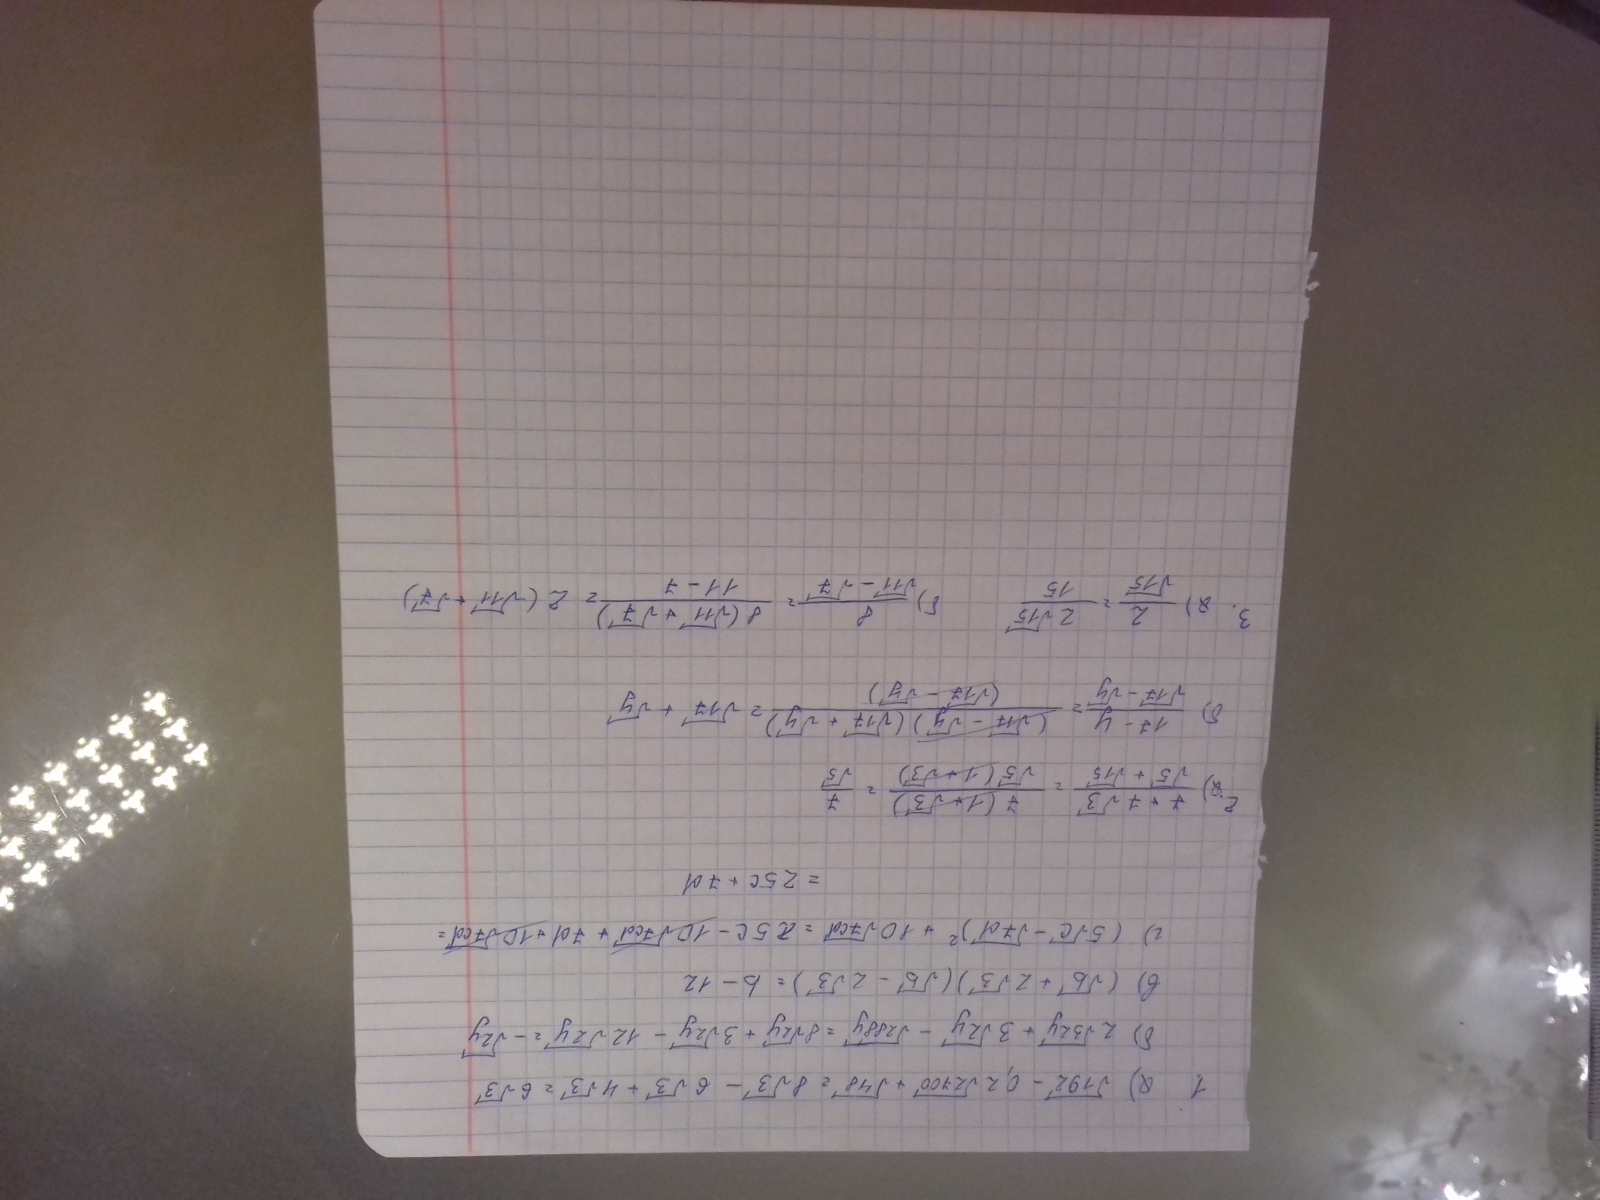 1. а) √192 - 0,2√2700 + √48 = 8√3 - 6√3 + 4√3 = 6√3
б) 2√32y + 3√2y - √288y = 8√2y + 3√2y - 12√2y = -√2y
в) (√b + 2√3)(√b - 2√3) = b - 12
г) (5√c - √7d)² + 10√7cd = 25c - 10√7cd + 7d + 10√7cd =
= 25c + 7d
2. а) (7 + 7√3)/(√5 + √15) = 7(1+√3)/√5(1+√3) = 7/√5
б) (17 - y)/(√17 - √y) = (√17 - √y)(√17 + √y)/(√17 - √y) = √17 + √y
3. а) 2/√15 = 2√15/15 б) 8/(√11 - √7) = 8(√11 + √7)/(11 - 7) = 2(√11 + √7)